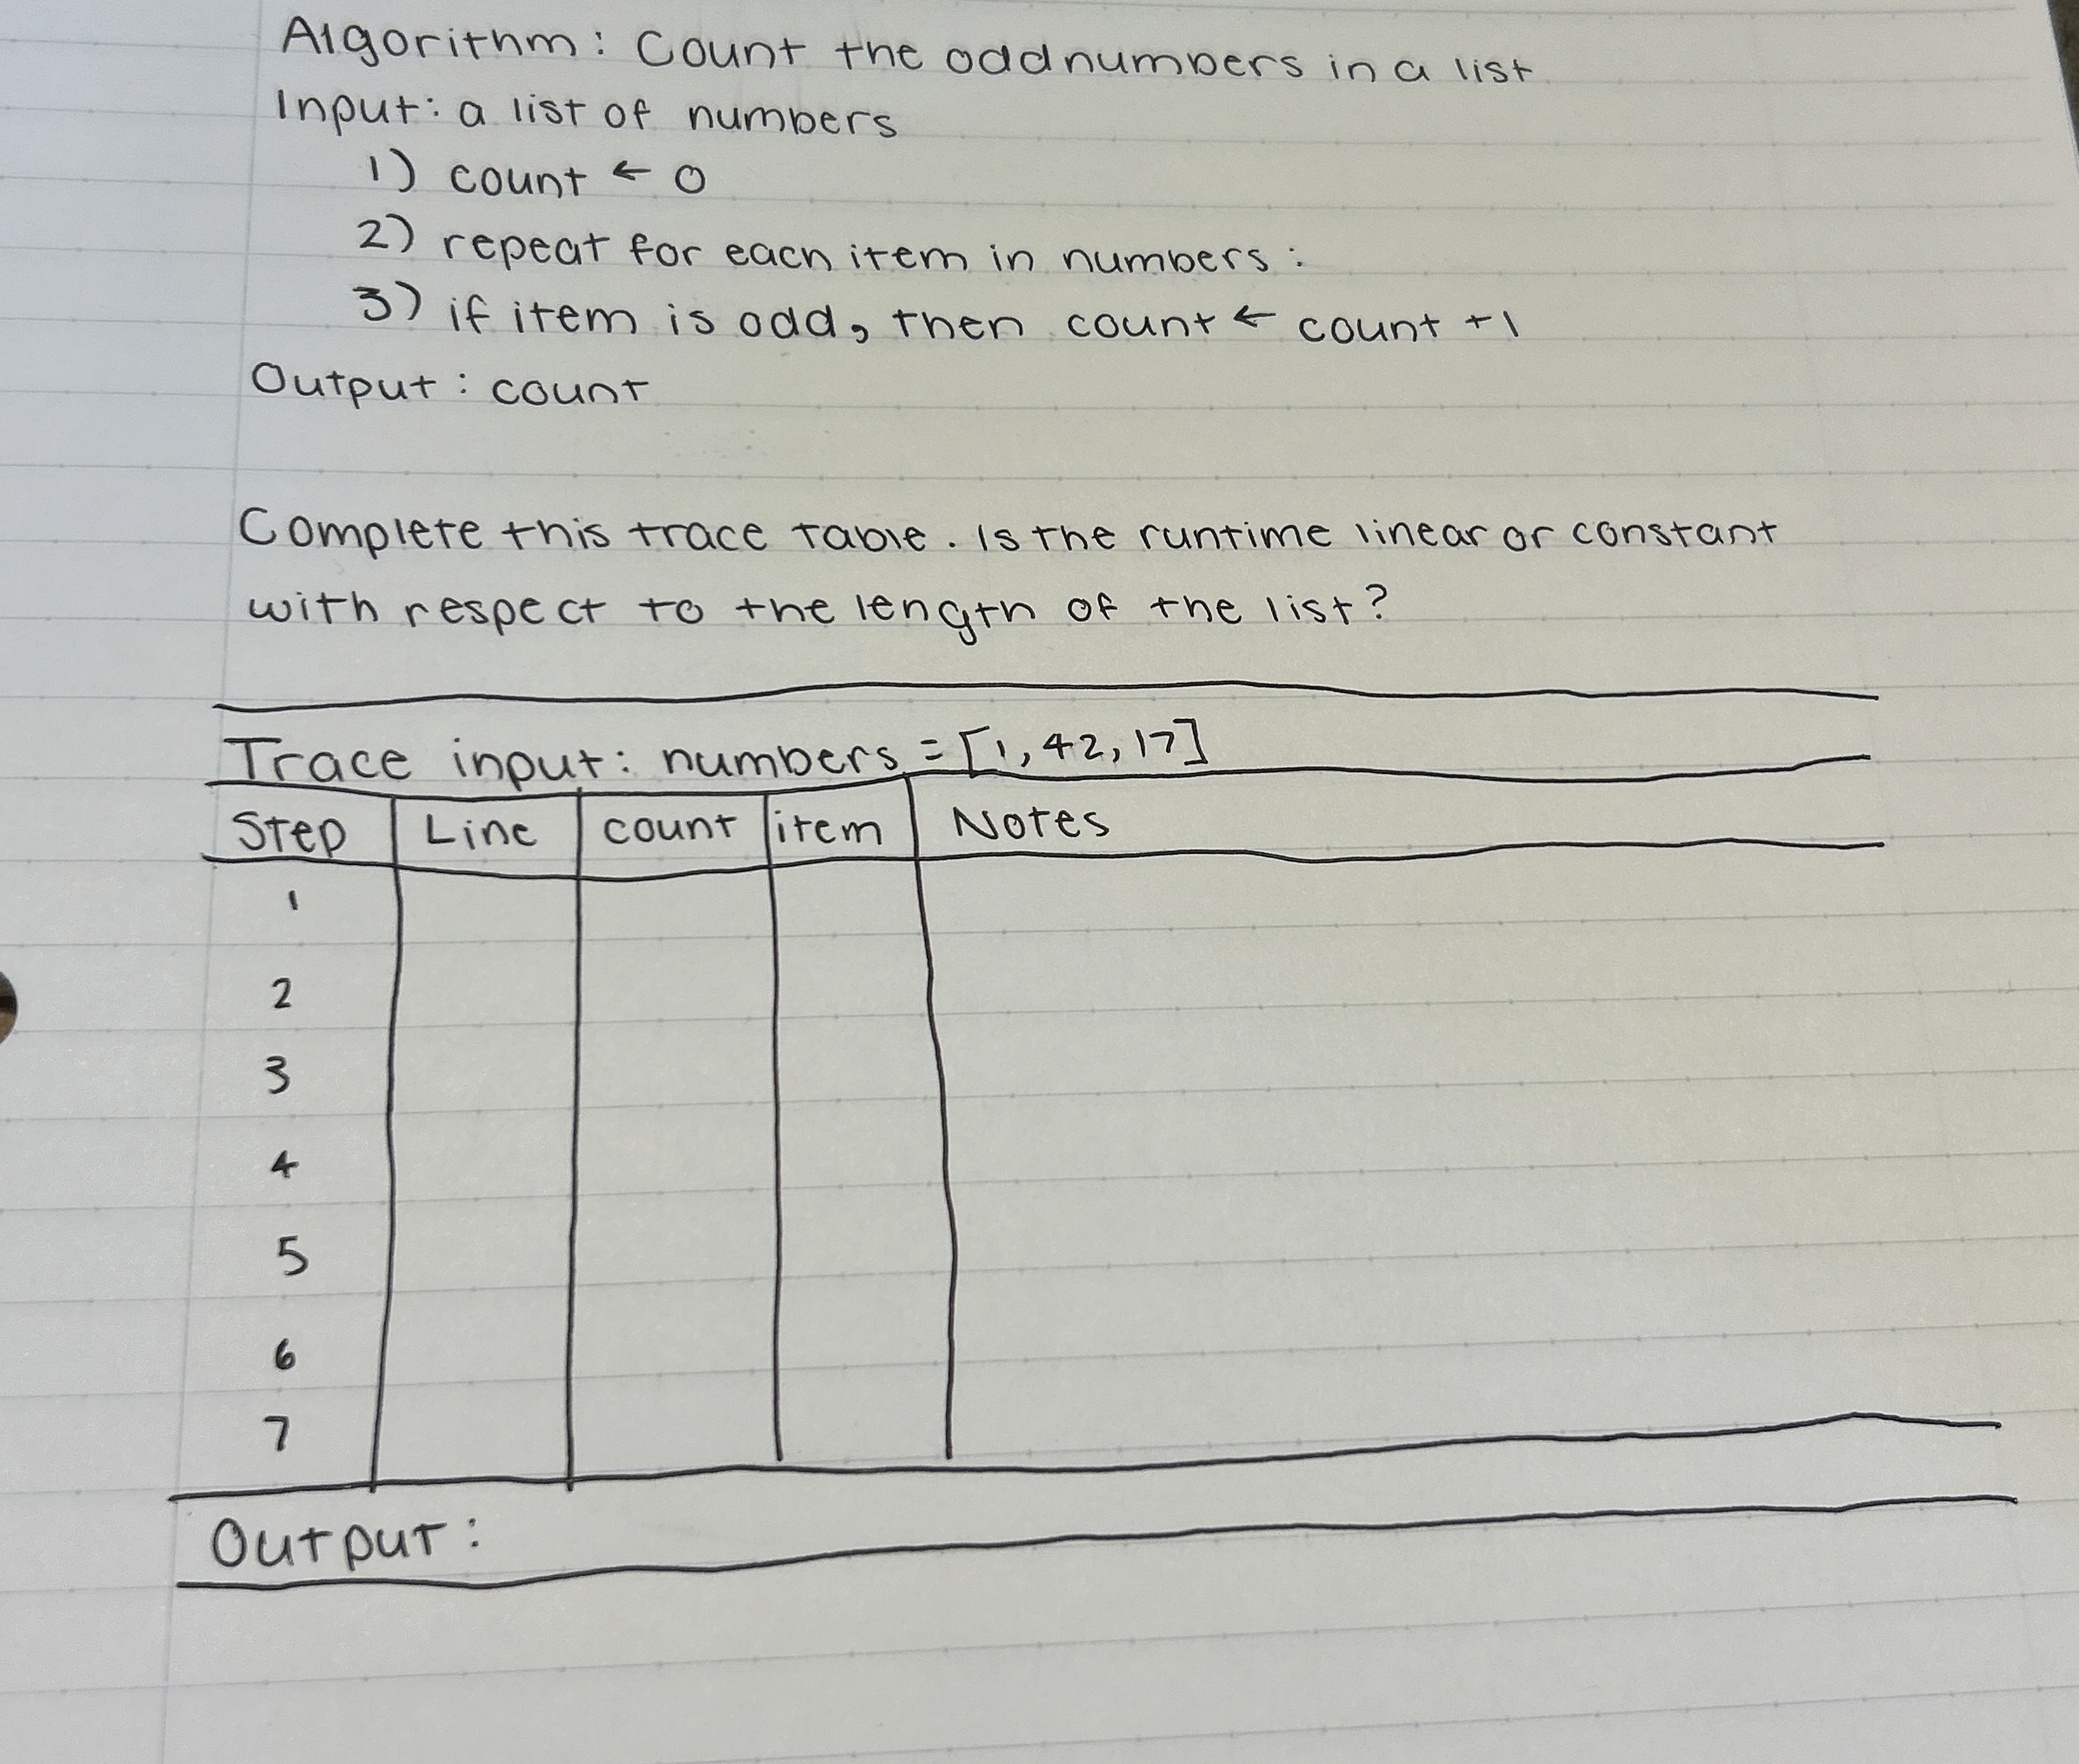 Algorithm: Count the odd numbers in a list
Input: a list of numbers
1) count ← 0
2) repeat for each item in numbers:
3) if item is odd, then count ← count +1
Output: count
Complete this trace table. Is the runtime linear or constant
with respect to the length of the list?
Trace input: numbers = [1, 42, 17]
Step Line count item Notes
1
2
3
4
5
6
7
Output: